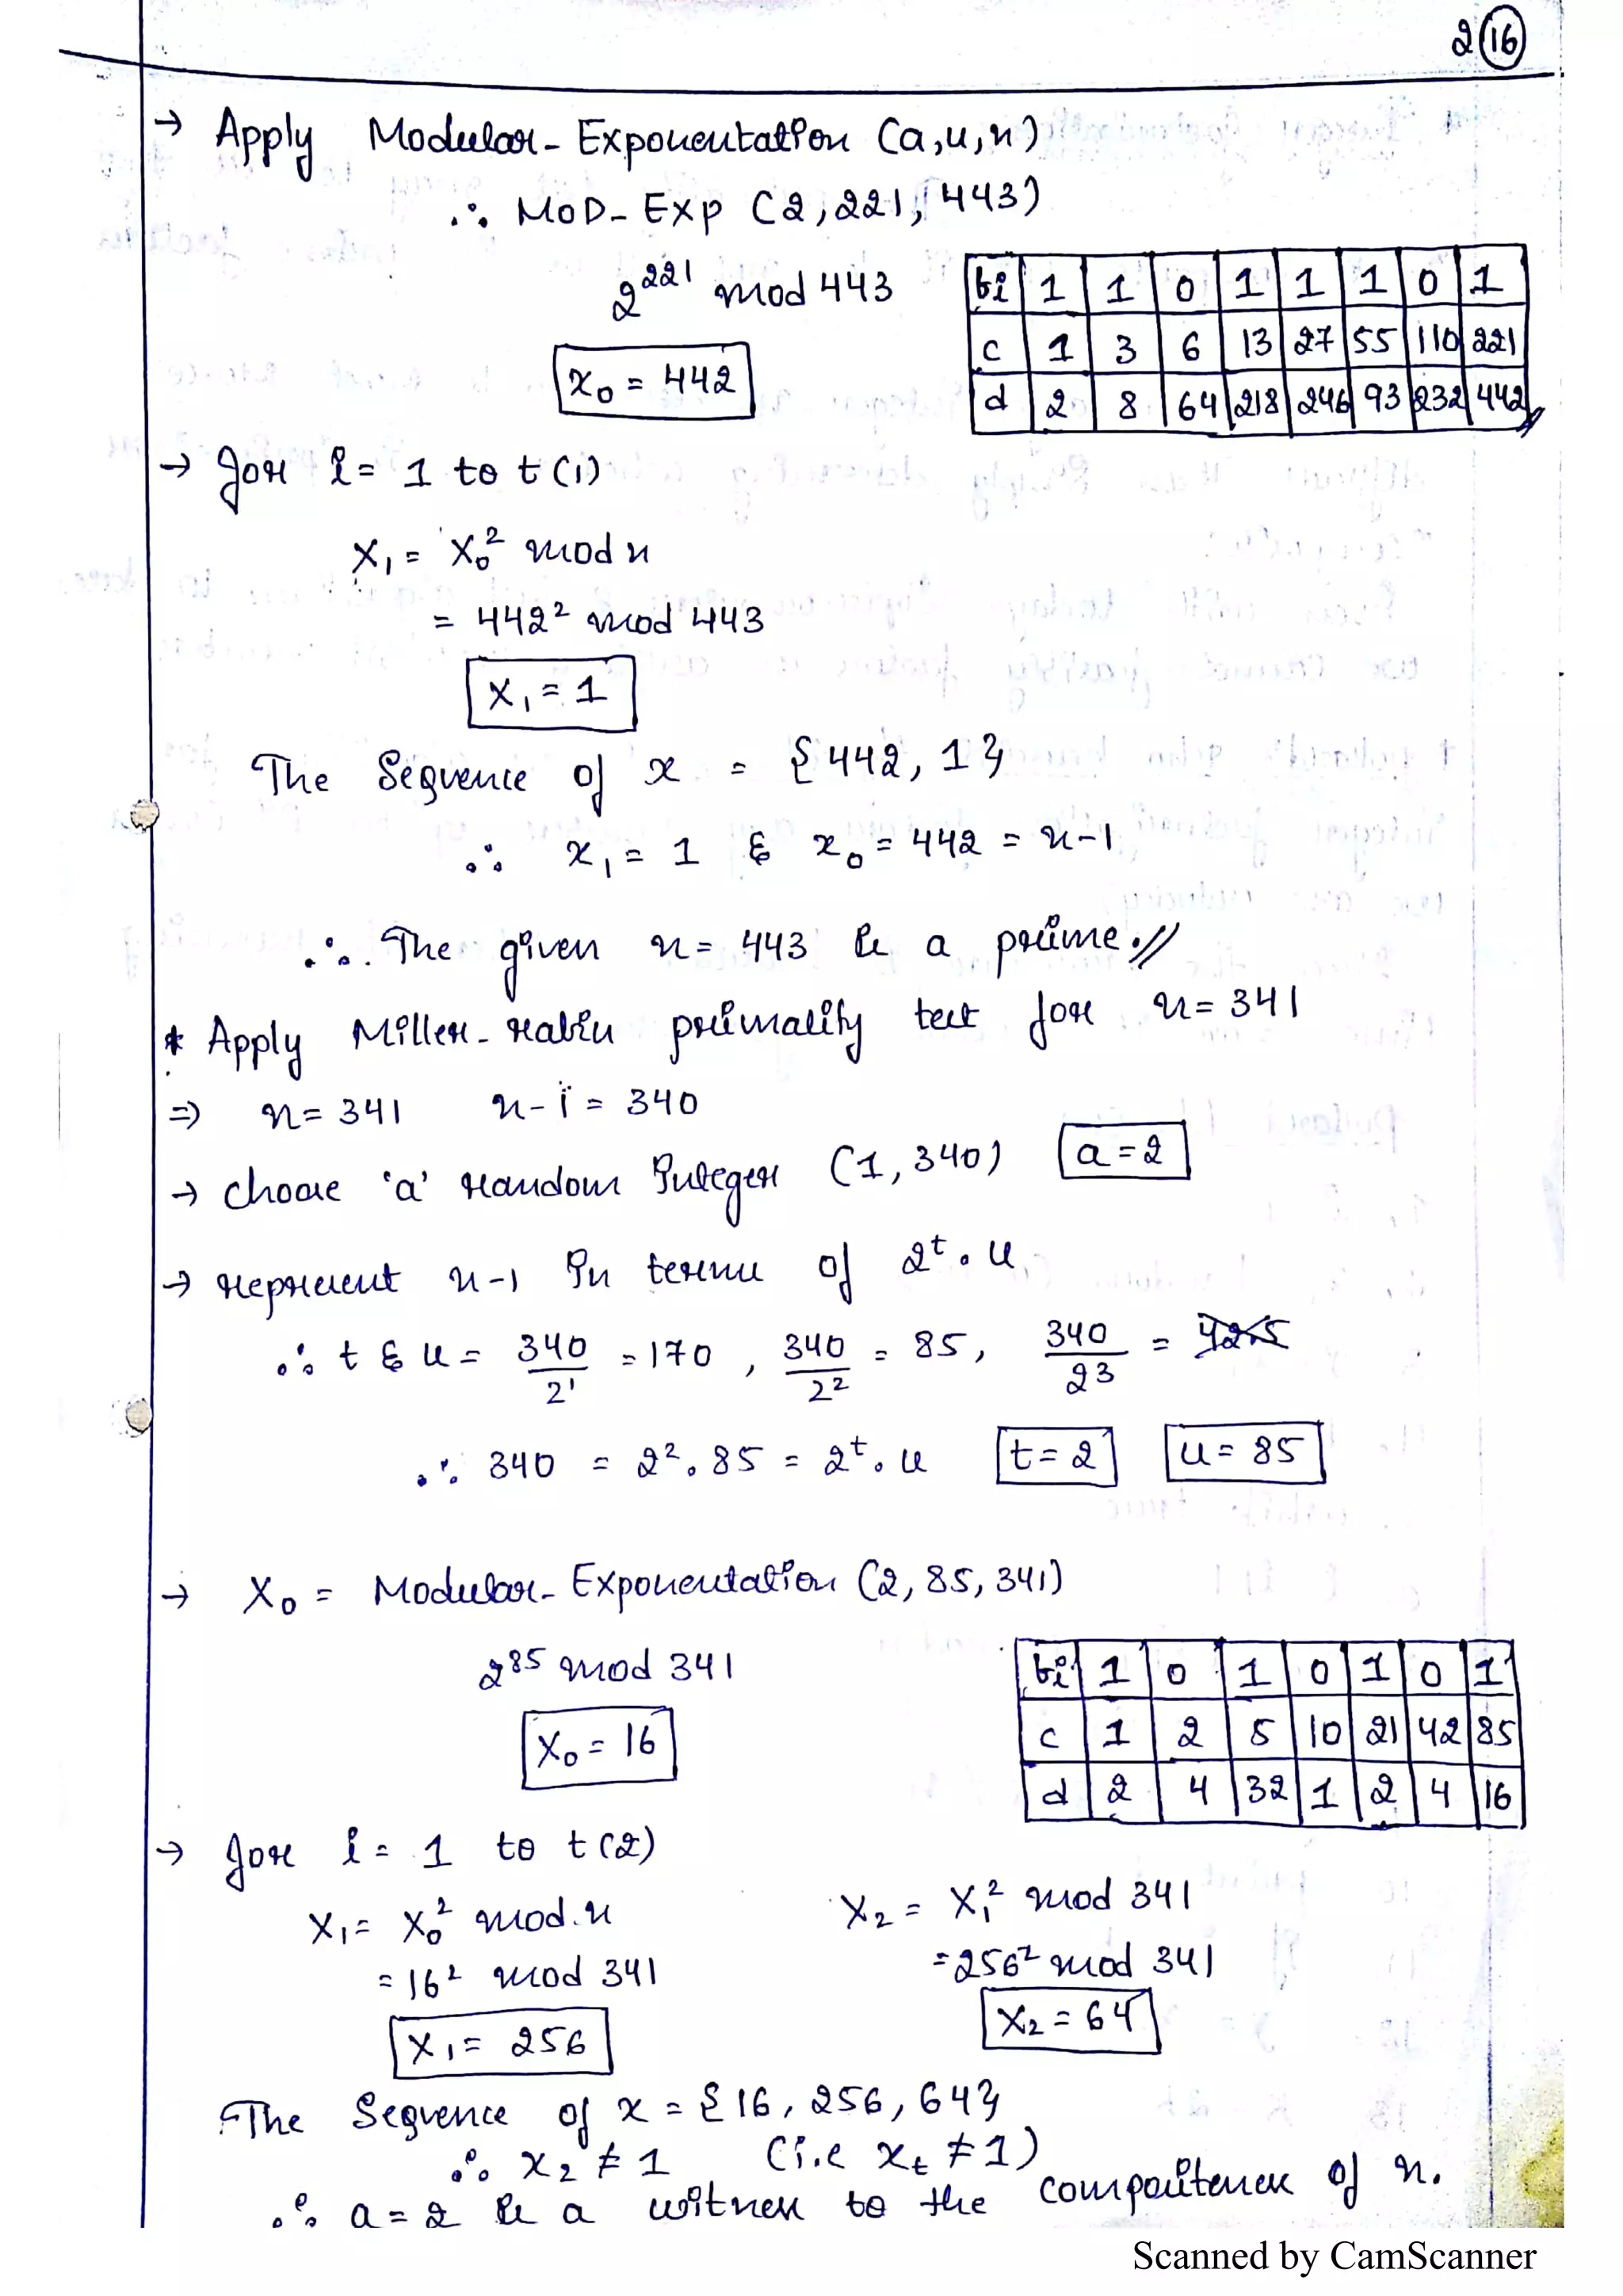 2 16
→ Apply Modular-Exponentation (a,u,n)
∴ MOD-Exp (2,221,443)
2²²¹ mod 443
x₀ = 442
bi 1 1 0 1 1 1 0 1
c 1 3 6 13 27 55 110 221
d 2 8 64 218 246 93 232 442
→ for i = 1 to t(1)
X₁ = X₀² mod n
= 442² mod 443
X₁ = 1
The Sequence of x = {442, 1}
∴ x₁ = 1 & x₀ = 442 = n-1
∴ The given n = 443 is a prime.//
* Apply Miller-rabin primality test for n = 341
⇒ n = 341 n-1 = 340
→ choose 'a' random Integer (1,340) a = 2
→ represent n-1 In terms of 2ᵗ.u
∴ t & u = 340/2¹ = 170, 340/2² = 85, 340/2³ = 42.5
∴ 340 = 2².85 = 2ᵗ.u t = 2 u = 85
→ X₀ = Modular-Exponentation (2,85,341)
2⁸⁵ mod 341
X₀ = 16
bi 1 0 1 0 1 0 1
c 1 2 5 10 21 42 85
d 2 4 32 1 2 4 16
→ for i = 1 to t(2)
X₁ = X₀² mod.n
= 16² mod 341
X₁ = 256
X₂ = X₁² mod 341
= 256² mod 341
X₂ = 64
The Sequence of x = {16, 256, 64}
∴ x₂ ≠ 1 (i.e xₜ ≠ 1)
∴ a = 2 is a witness to the compositeness of n.
Scanned by CamScanner